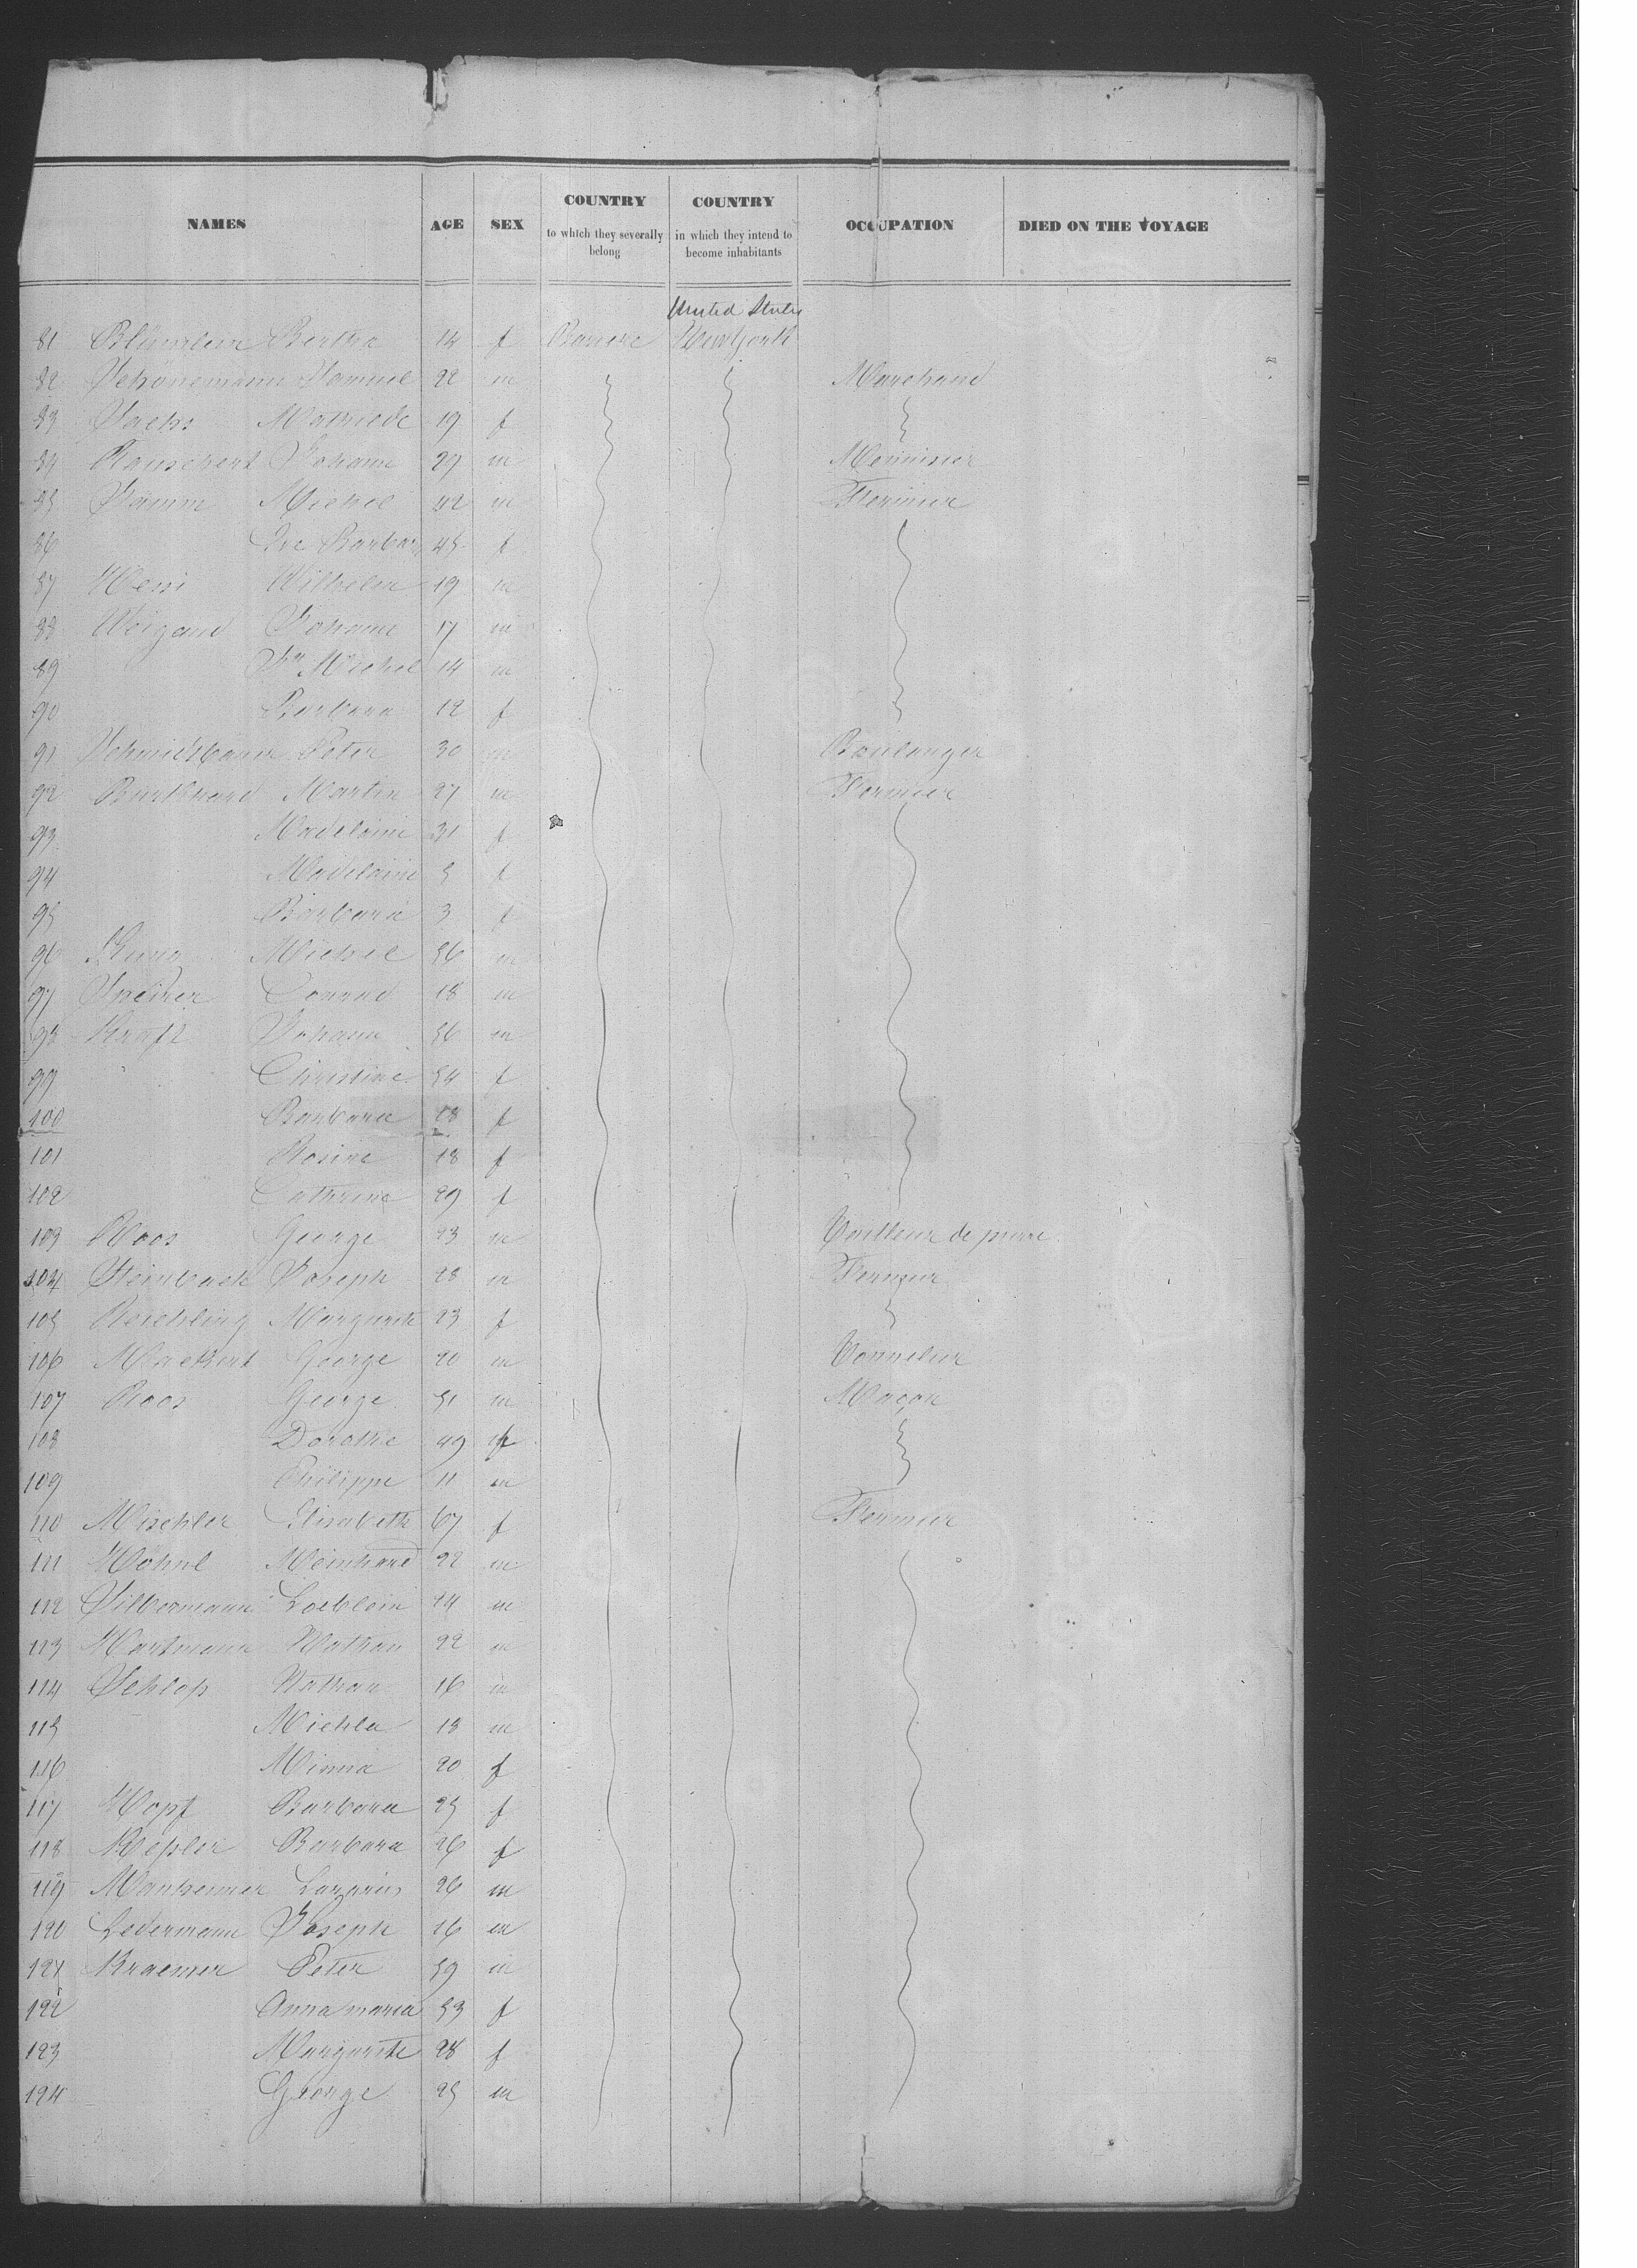 NAMES AGE SEX COUNTRY to which they severally belong COUNTRY in which they intend to become inhabitants OCCUPATION DIED ON THE VOYAGE
United States
81 Blümlein Bertha 14 f Baviere New York
82 Schönemann Samuel 22 m Marchand
83 Sachs Mathilde 19 f
84 Rauschert Johann 29 m Menuisier
85 Damm Michel 42 m Fermier
86 Eve Barbara 45 f
87 Hess Wilhelm 19 m
88 Weigand Johann 17 m
89 Jn Michel 14 m
90 Barbara 12 f
91 Schmidtbauer Peter 30 m Boulanger
92 Burkhard Martin 27 m Fermier
93 Madelaine 31 f
94 Madelaine 5 f
95 Barbara 3 f
96 Michel 56 m
97 Conrad 18 m
98 Kraft Johann 56 m
99 Christine 54 f
100 Barbara 28 f
101 Rosine 18 f
102 Cathrine 29 f
103 Roos George 23 m Tailleur de pierre
104 Steinbach Joseph 28 m Fermier
105 Reichling Margarith 23 f
106 Mackert George 20 m Tonnelier
107 Roos George 51 m Maçon
108 Dorothe 49 f
109 Philippe 11 m
110 Mischler Elisabeth 67 f Fermier
111 Höhnl Meinhard 22 m
112 Silbermann Loeblein 24 m
113 Hartmann Nathan 22 m
114 Schlop Nathan 16 m
115 Michla 18 m
116 Minna 20 f
117 Hopf Barbara 25 f
118 Kepler Barbara 26 f
119 Manheimer Lazarus 26 m
120 Ledermann Joseph 16 m
121 Kraemer Peter 59 m
122 Anna maria 53 f
123 Margarith 28 f
124 George 25 m